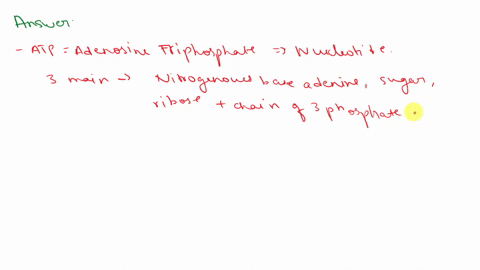 Answer:
- ATP = Adenosine Triphosphate => Nucleotide.
3 main -> Nitrogenous base adenine, sugar,
ribose + chain of 3 phosphate